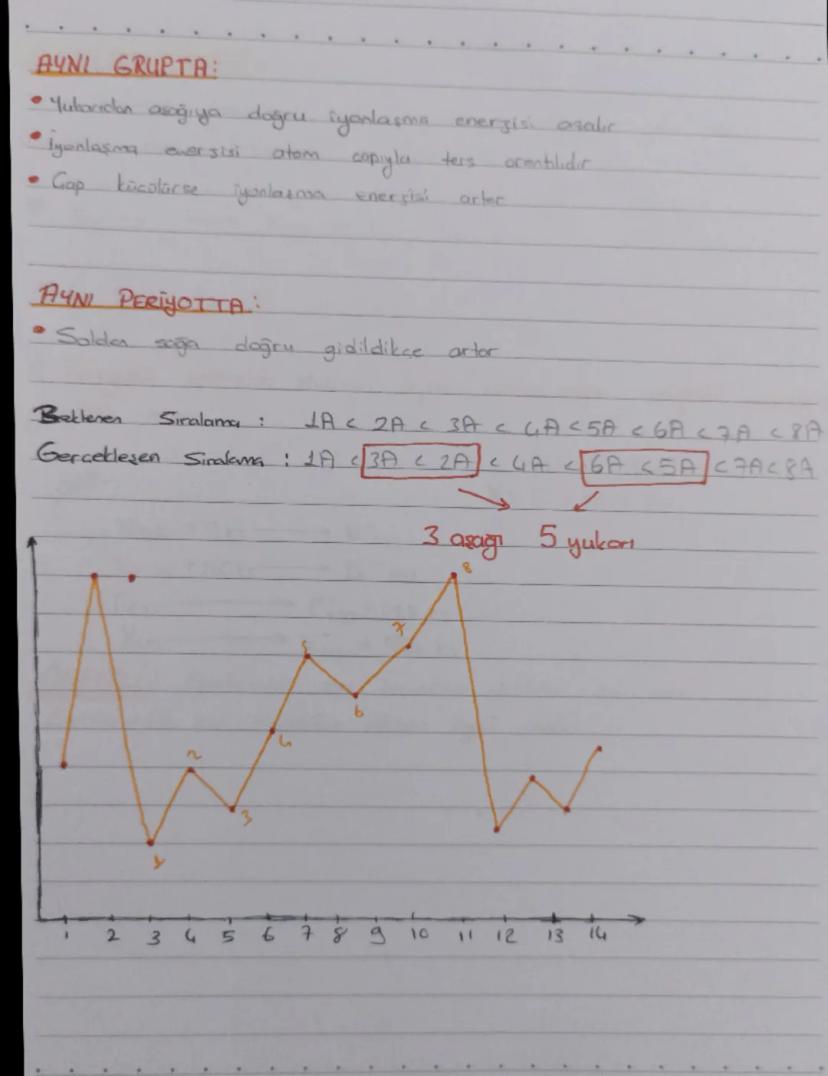 AYNI GRUPTA:
• Yukarıdan aşağıya doğru iyonlaşma enerjisi azalır
• İyonlaşma enerjisi atom çapıyla ters orantılıdır
• Çap küçülürse iyonlaşma enerjisi artar
AYNI PERİYOTTA:
• Soldan sağa doğru gidildikçe artar
Beklenen Sıralama : 1A < 2A < 3A < 4A < 5A < 6A < 7A < 8A
Gerçekleşen Sıralama : 1A < 3A < 2A < 4A < 6A < 5A < 7A < 8A
3 aşağı 5 yukarı
8
7
5
6
2
4
3
1
1 2 3 4 5 6 7 8 9 10 11 12 13 14